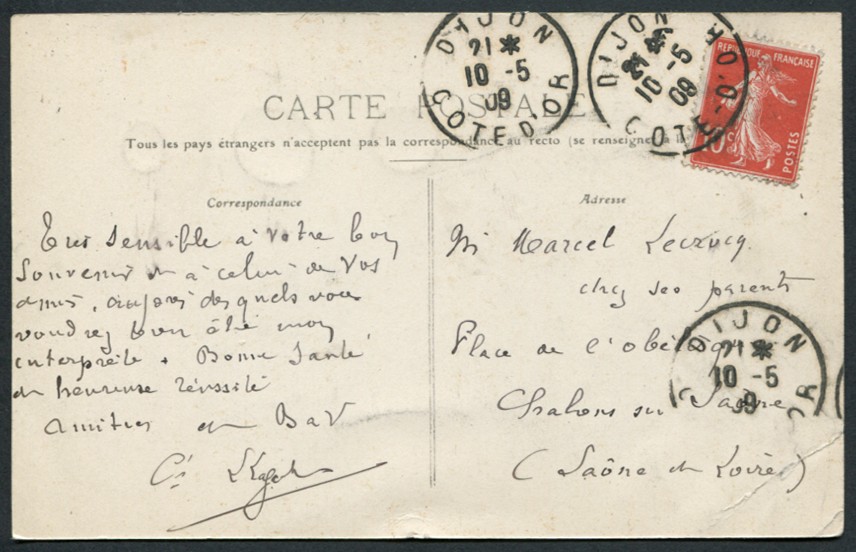 DIJON
21*
10 -5
09
COTE D'OR
DIJON
10 -5
09
COTE-D'OR
REPUBLIQUE FRANÇAISE
10c
POSTES
CARTE POSTALE
Tous les pays étrangers n'acceptent pas la correspondance au recto (se renseigner à la
Correspondance
Très sensible à votre bon
souvenir et à celui de vos
amis, auprès desquels vous
voudrez bien être mon
interprète. Bonne santé
et heureuse réussite
Amitiés et
Adresse
Mr Marcel
chez ses parents
Place de l'obélisque
Chalons sur Saône
(Saône et Loire)
DIJON
21*
10 -5
09